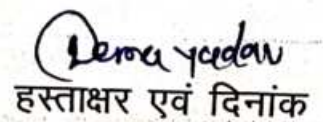 Dema yadav
हस्ताक्षर एवं दिनांक